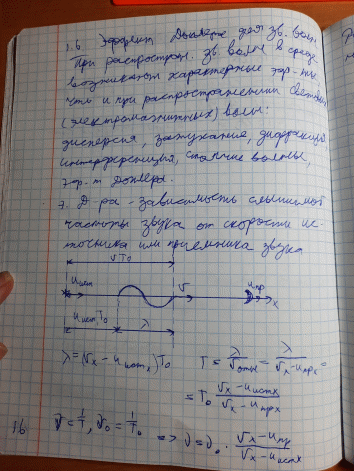 1.6 Эффект Доплера для зв. волн.
При распростран. зв. волн в среде
возникают характерные эф-ты,
что и при распространении световых
(электромагнитных) волн:
дисперсия, затухание, дифракция,
интерференция, стоячие волны,
эф-т Доплера.
Э. Д-ра - зависимость слышимой
частоты звука от скорости ис-
точника или приемника звука
vT₀
uист v uпр
x
uистT₀ λ
λ = (vₓ - uист x)T₀ T = λ/vотн = λ/(vₓ - uпр x) =
= T₀ (vₓ - uист x)/(vₓ - uпр x)
16 ν = 1/T, ν₀ = 1/T₀ => ν = ν₀ · (vₓ - uпр)/(vₓ - uист x)